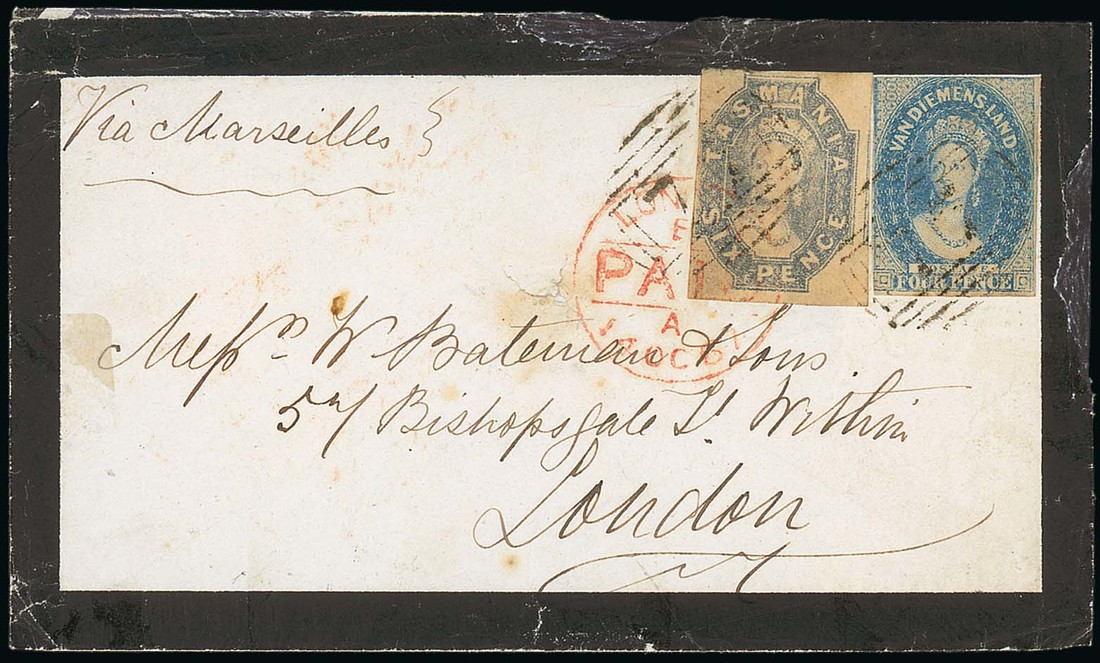 Via Marseilles
TASMANIA
SIX PENCE
VAN DIEMENS LAND
FOUR PENCE
LON
PA
A
OC
Mess.rs W Bateman & Sons
57/ Bishopsgate St. Within
London